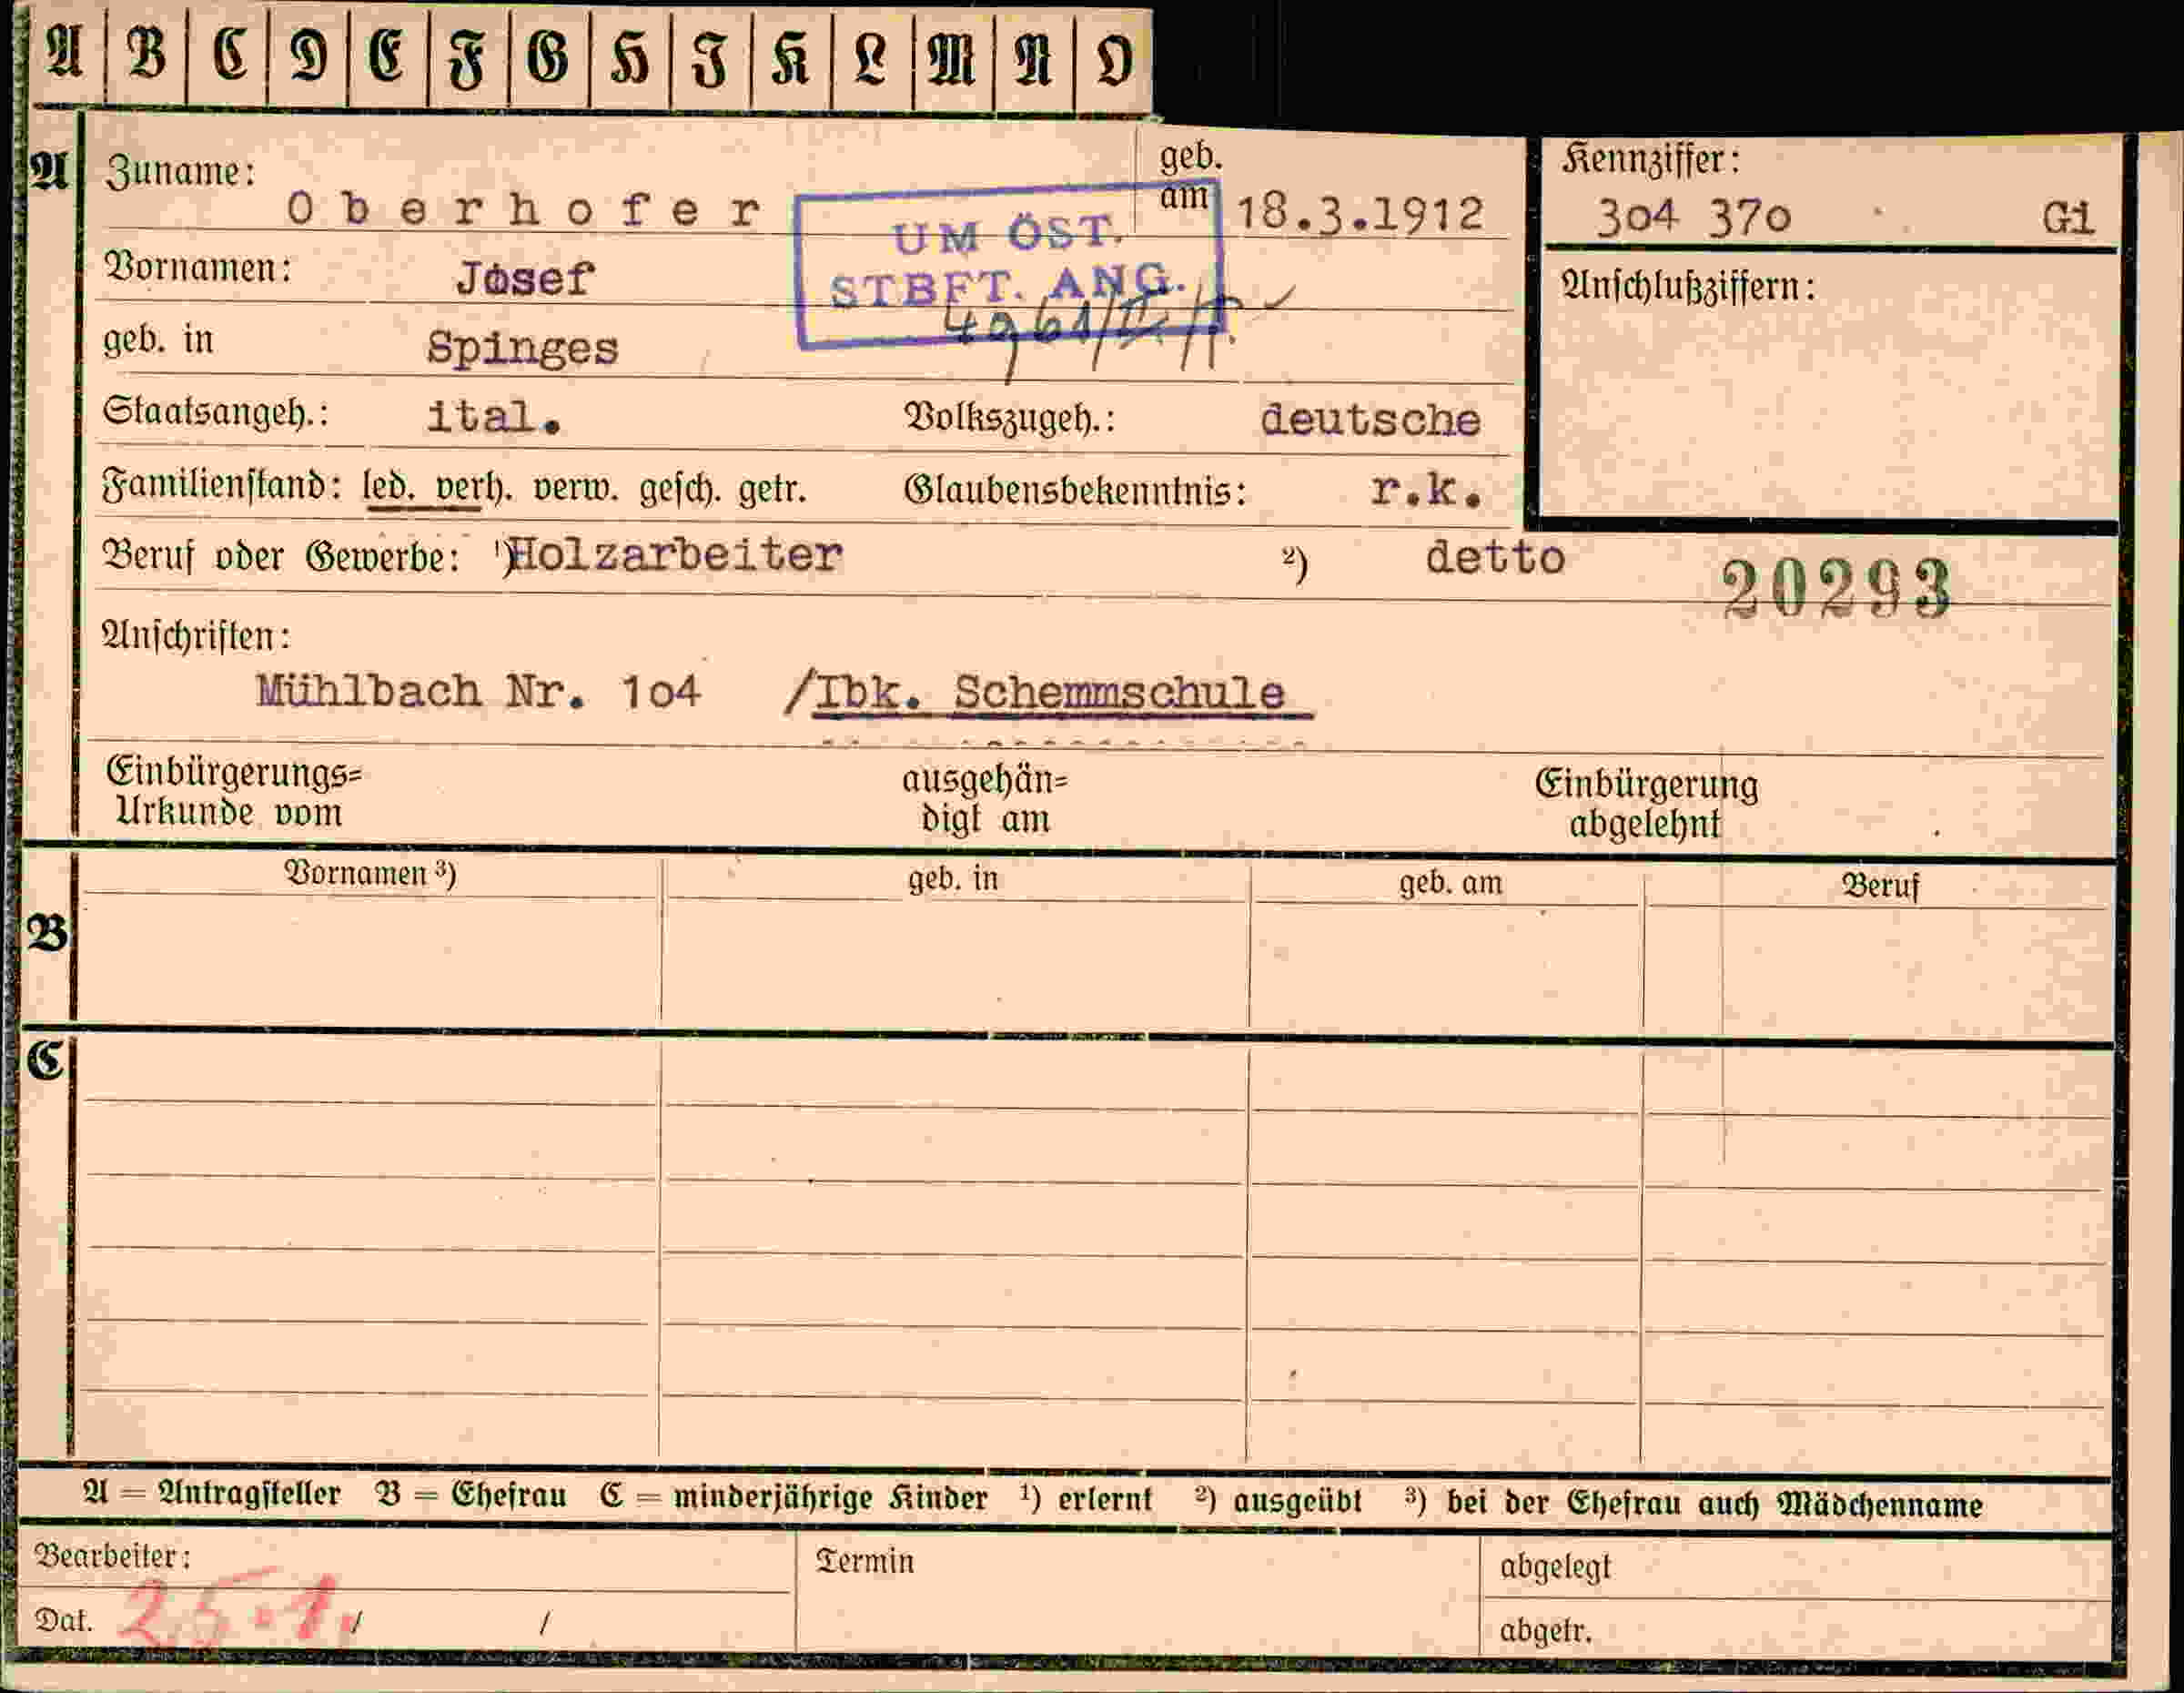 A B C D E F G H I K L M N O
A Zuname: Oberhofer geb. am 18.3.1912 Kennziffer: 3o4 37o G1
UM ÖST.
STBFT. ANG.
Vornamen: Josef Anschlußziffern:
geb. in Spinges
Staatsangeh.: ital. Volkszugeh.: deutsche
Familienstand: led. verh. verw. gesch. getr. Glaubensbekenntnis: r.k.
Beruf oder Gewerbe: ¹) Holzarbeiter ²) detto 20293
Anschriften:
Mühlbach Nr. 1o4 /Ibk. Schemmschule
Einbürgerungs= ausgehän= Einbürgerung
Urkunde vom digt am abgelehnt
Vornamen ³) geb. in geb. am Beruf
B
C
A = Antragsteller B = Ehefrau C = minderjährige Kinder ¹) erlernt ²) ausgeübt ³) bei der Ehefrau auch Mädchenname
Bearbeiter: Termin abgelegt
Dat. 25.1. / / abgetr.